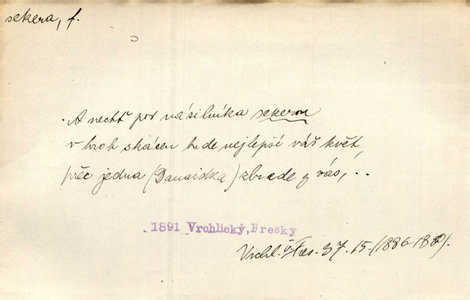 sekera, f.
A nechť pod násilníka sekerou
v hrob skácen bude nejlepší váš květ,
přec jedna (Danaidka) zbude z vás, ..
1891 Vrchlický, Fresky
Vrchl. 37. 15 (1886-